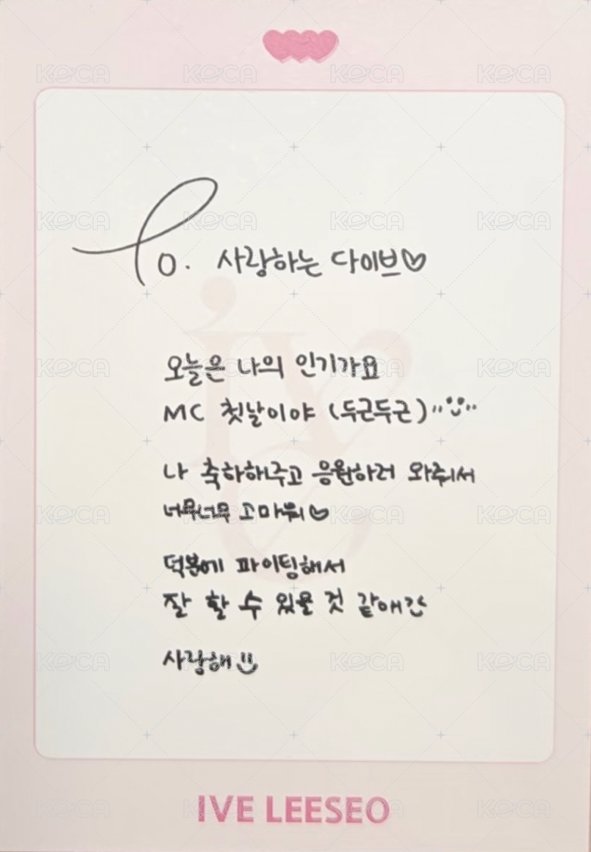 To. 사랑하는 다이브♡
오늘은 나의 인기가요
MC 첫날이야 (두근두근)
나 축하해주고 응원하러 와줘서
너무너무 고마워♡
덕분에 파이팅해서
잘 할 수 있을 것 같애
사랑해
IVE LEESEO
KOCA